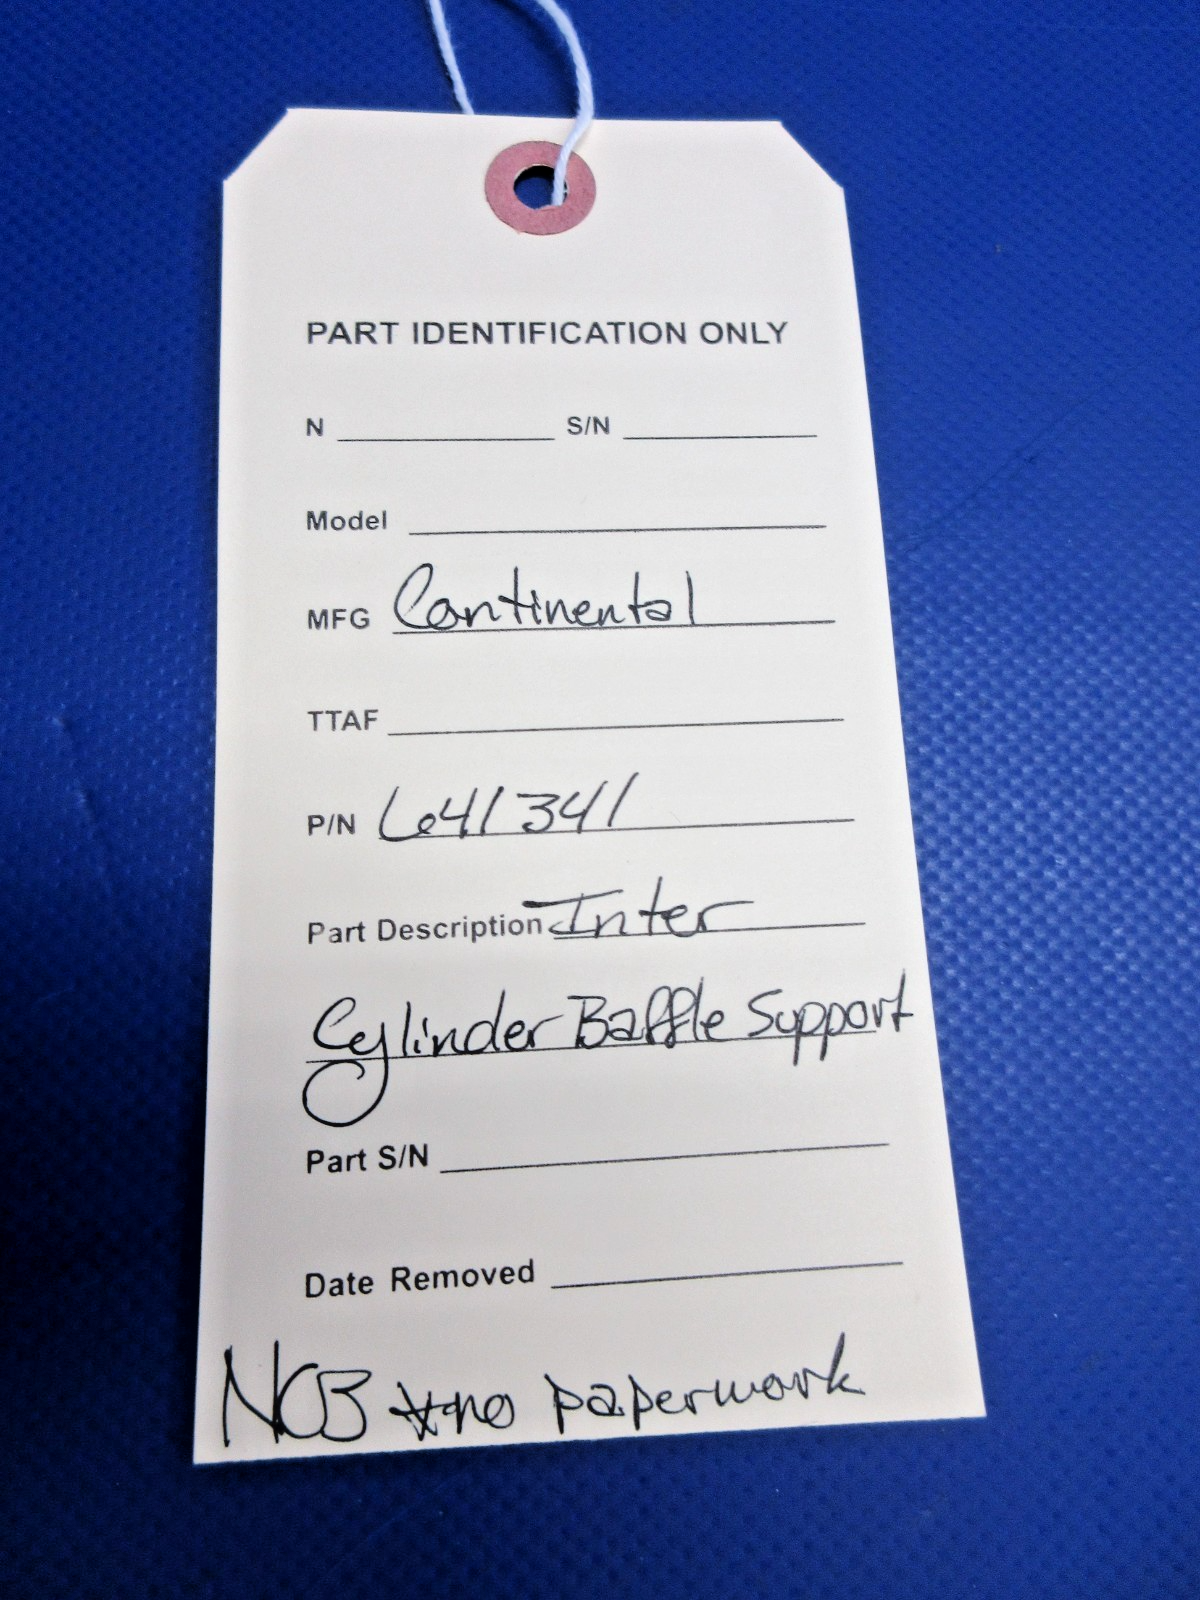 PART IDENTIFICATION ONLY
N S/N
Model
MFG Continental
TTAF
P/N 641341
Part Description Inter
Cylinder Baffle Support
Part S/N
Date Removed
no paperwork